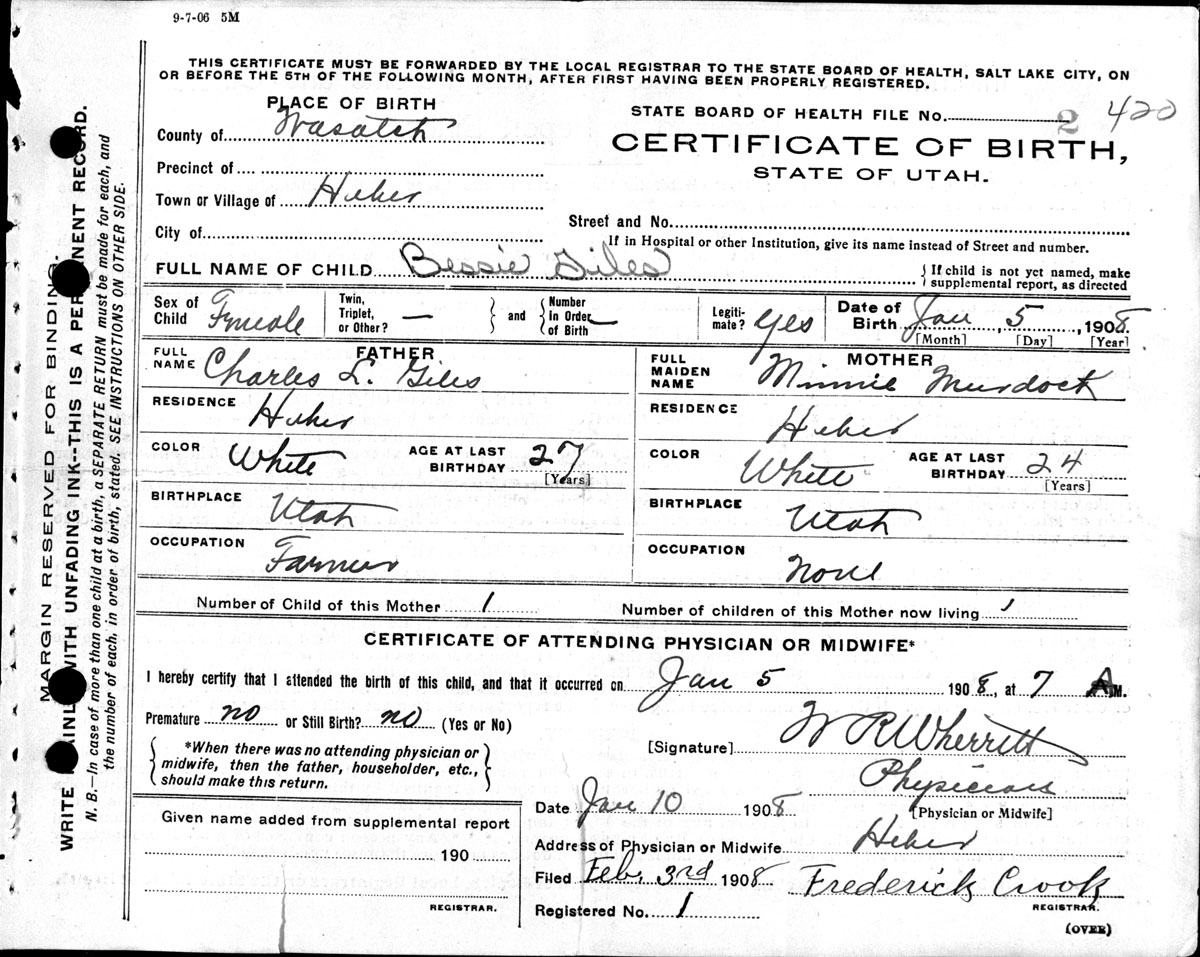 9-7-06 5M
THIS CERTIFICATE MUST BE FORWARDED BY THE LOCAL REGISTRAR TO THE STATE BOARD OF HEALTH, SALT LAKE CITY, ON
OR BEFORE THE 5TH OF THE FOLLOWING MONTH, AFTER FIRST HAVING BEEN PROPERLY REGISTERED.
PLACE OF BIRTH
County of Wasatch
Precinct of
Town or Village of Heber
City of
STATE BOARD OF HEALTH FILE No. 2 420
CERTIFICATE OF BIRTH,
STATE OF UTAH.
Street and No.
If in Hospital or other Institution, give its name instead of Street and number.
FULL NAME OF CHILD Bessie Giles
If child is not yet named, make
supplemental report, as directed
Sex of Child Female
Twin, Triplet, or Other? —
and
Number In Order of Birth —
Legiti-mate? Yes
Date of Birth Jan 5, 1908
[Month] [Day] [Year]
FATHER
FULL NAME Charles L. Giles
RESIDENCE Heber
COLOR White
AGE AT LAST BIRTHDAY 27
[Years]
BIRTHPLACE Utah
OCCUPATION Farmer
MOTHER
FULL MAIDEN NAME Minnie Murdock
RESIDENCE Heber
COLOR White
AGE AT LAST BIRTHDAY 24
[Years]
BIRTHPLACE Utah
OCCUPATION None
Number of Child of this Mother 1
Number of children of this Mother now living 1
CERTIFICATE OF ATTENDING PHYSICIAN OR MIDWIFE*
I hereby certify that I attended the birth of this child, and that it occurred on Jan 5 1908, at 7 A M.
Premature no or Still Birth? no (Yes or No)
*When there was no attending physician or
midwife, then the father, householder, etc.,
should make this return.
[Signature] W R Wherritt
Physician
[Physician or Midwife]
Date Jan 10 1908
Address of Physician or Midwife Heber
Filed Feb. 3rd 1908 Frederick Crook
REGISTRAR.
Registered No. 1
(OVER)
Given name added from supplemental report
190
REGISTRAR.
MARGIN RESERVED FOR BINDING.
WRITE PLAINLY WITH UNFADING INK--THIS IS A PERMANENT RECORD.
N. B.—In case of more than one child at a birth, a SEPARATE RETURN must be made for each, and
the number of each, in order of birth, stated. SEE INSTRUCTIONS ON OTHER SIDE.